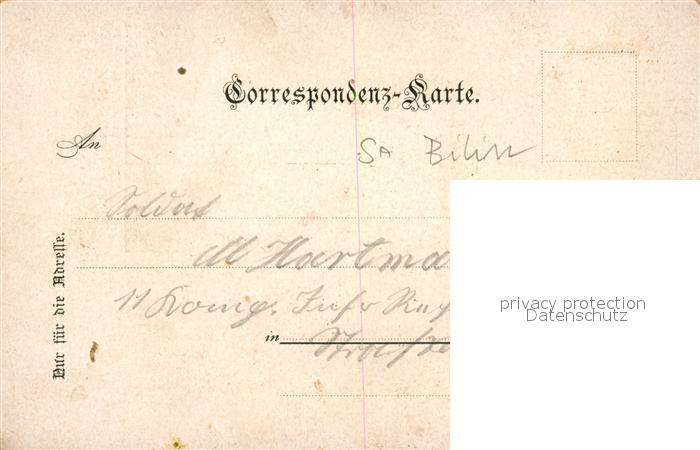 Correspondenz-Karte.
An
SA Bilin
Soldat
M Hartma
11 Komp. Infr Reg
in
Nur für die Adresse.
privacy protection
Datenschutz